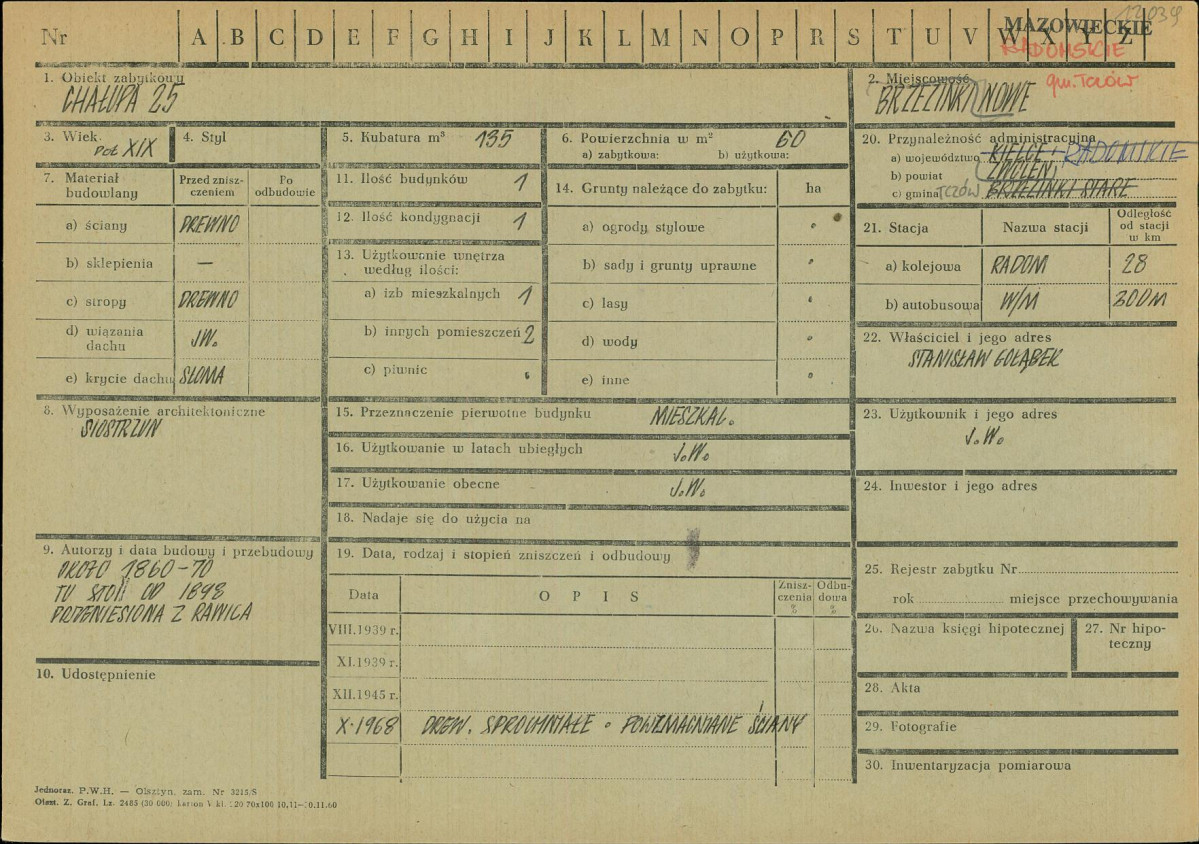 Nr A B C D E F G H I J K L M N O P R S T U V W X Y Z
MAZOWIECKIE
RADOMSKIE
gm. Tczów
1. Obiekt zabytkowy
CHAŁUPA 25
2. Miejscowość
BRZEZINKI NOWE
3. Wiek
POŁ XIX
4. Styl
5. Kubatura m³ 135
6. Powierzchnia w m² 60
a) zabytkowa: b) użytkowa:
20. Przynależność administracyjna
a) województwo KIELCE RADOMSKIE
b) powiat ZWOLEŃ
c) gmina TCZÓW BRZEZINKI STARE
7. Materiał budowlany
Przed zniszczeniem
Po odbudowie
a) ściany DREWNO
b) sklepienia —
c) stropy DREWNO
d) wiązania dachu JW.
e) krycie dachu SŁOMA
11. Ilość budynków 1
12. Ilość kondygnacji 1
13. Użytkowanie wnętrza
według ilości:
a) izb mieszkalnych 1
b) innych pomieszczeń 2
c) piwnic
14. Grunty należące do zabytku: ha
a) ogrody stylowe
b) sady i grunty uprawne
c) lasy
d) wody
e) inne
21. Stacja Nazwa stacji Odległość od stacji w km
a) kolejowa RADOM 28
b) autobusowa W/M 300M
22. Właściciel i jego adres
STANISŁAW GOŁĄBEK
8. Wyposażenie architektoniczne
SIOSTRZUN
15. Przeznaczenie pierwotne budynku MIESZKAL.
16. Użytkowanie w latach ubiegłych J.W.
17. Użytkowanie obecne J.W.
18. Nadaje się do użycia na
23. Użytkownik i jego adres
J.W.
24. Inwestor i jego adres
9. Autorzy i data budowy i przebudowy
OKOŁO 1860-70
TU STOI OD 1898
PRZENIESIONA Z RAWICA
10. Udostępnienie
19. Data, rodzaj i stopień zniszczeń i odbudowy
Data OPIS Zniszczenia % Odbudowa %
VIII.1939 r.
XI.1939 r.
XII.1945 r.
X.1968 DREW. SPRÓCHNIAŁE . POWZMACNIANE ŚCIANY
25. Rejestr zabytku Nr
rok miejsce przechowywania
26. Nazwa księgi hipotecznej
27. Nr hipoteczny
28. Akta
29. Fotografie
30. Inwentaryzacja pomiarowa
Jednoraz. P.W.H. — Olsztyn, zam. Nr 3215/S
Olszt. Z. Graf. Lz. 2485 (30 000) karton V kl. 70x100